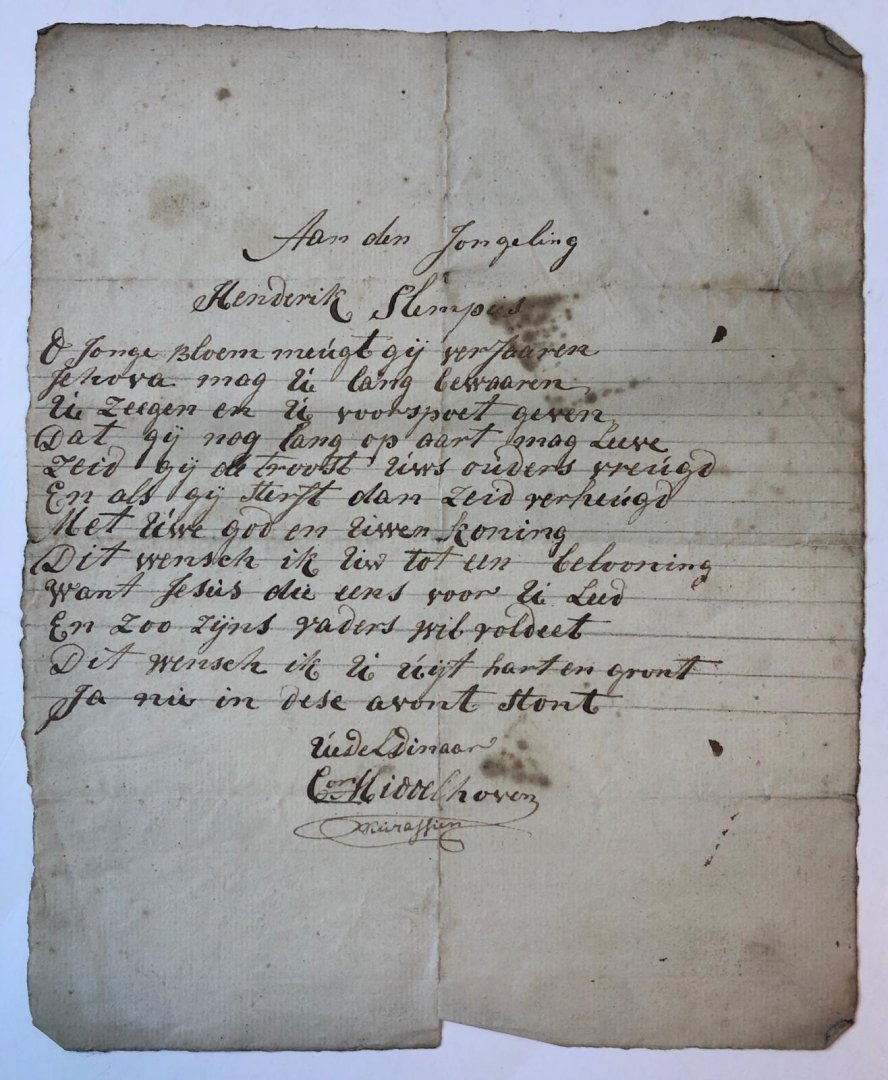 Aan den Jongeling
Henderik Slempes
O Jonge Bloem meugt gij verJaaren
Jehova mag Uu lang bewaaren
Uu Zeegen en U voorspoet geven
Dat gij nog lang op aart mag Leeve
Zeid gij de troost Uws ouders vreugd
En als gij sterft dan Zeid verheugd
Met Uwe god en Uwen koning
Dit wensch ik Uw tot een belooning
want Jesus die eens voor U Leed
En Zoo Zijns vaders wil voldeet
Dit wensch ik U uijt hart en gront
Ja nu in dese avont stont
UEd
Cor Middelhoven